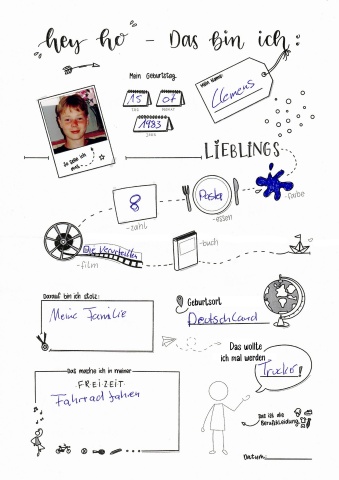 hey ho - Das bin ich:
Mein Geburtstag
15 07
TAG MONAT
1983
JAHR
Mein Name:
Clemens
So sehe ich aus
LIEBLINGS
8
-zahl
Pasta
-essen
-farbe
Die Verurteilten
-film
-buch
Darauf bin ich stolz:
Meine Familie
Geburtsort
Deutschland
Das wollte
ich mal werden
Trucker
Das mache ich in meiner
FREIZEIT
Fahrrad fahren
Das ist die
Berufskleidung
Datum: